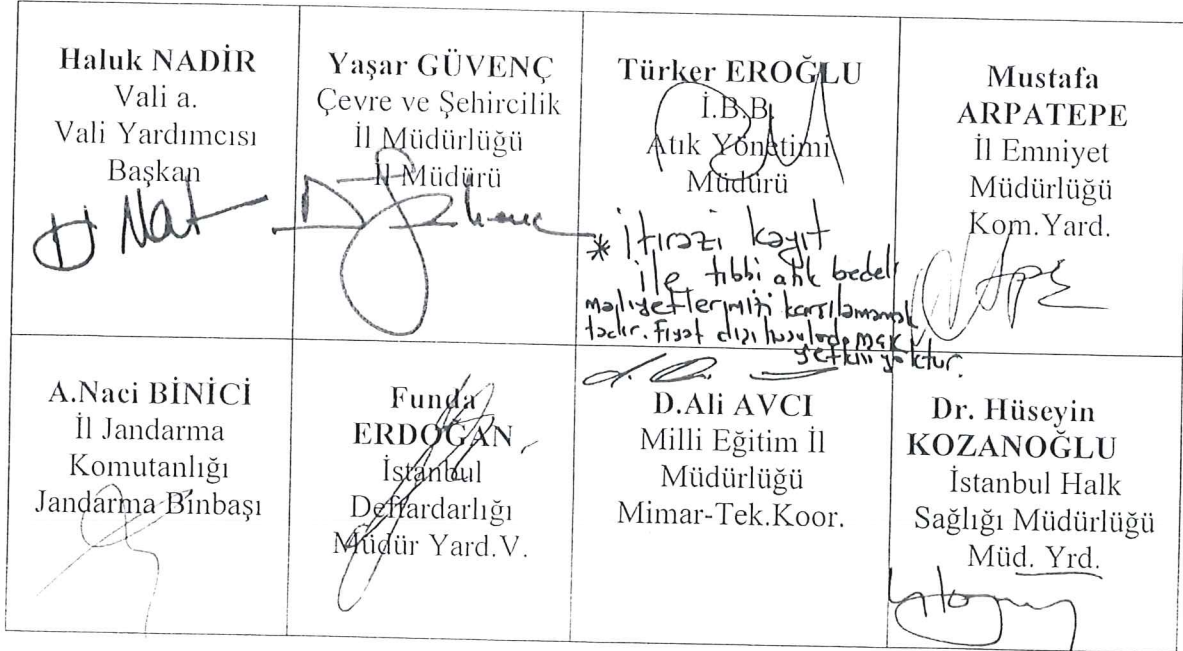 Haluk NADİR
Vali a.
Vali Yardımcısı
Başkan
Yaşar GÜVENÇ
Çevre ve Şehircilik
İl Müdürlüğü
İl Müdürü
Türker EROĞLU
İ.B.B.
Atık Yönetimi
Müdürü
* İtirazi kayıt
ile tıbbi atık bedeli
maliyetlerimizi karşılamamak
tadır. Fiyat dışı
yetkim yoktur.
Mustafa
ARPATEPE
İl Emniyet
Müdürlüğü
Kom.Yard.
A.Naci BİNİCİ
İl Jandarma
Komutanlığı
Jandarma Binbaşı
Funda
ERDOĞAN
İstanbul
Deftardarlığı
Müdür Yard.V.
D.Ali AVCI
Milli Eğitim İl
Müdürlüğü
Mimar-Tek.Koor.
Dr. Hüseyin
KOZANOĞLU
İstanbul Halk
Sağlığı Müdürlüğü
Müd. Yrd.